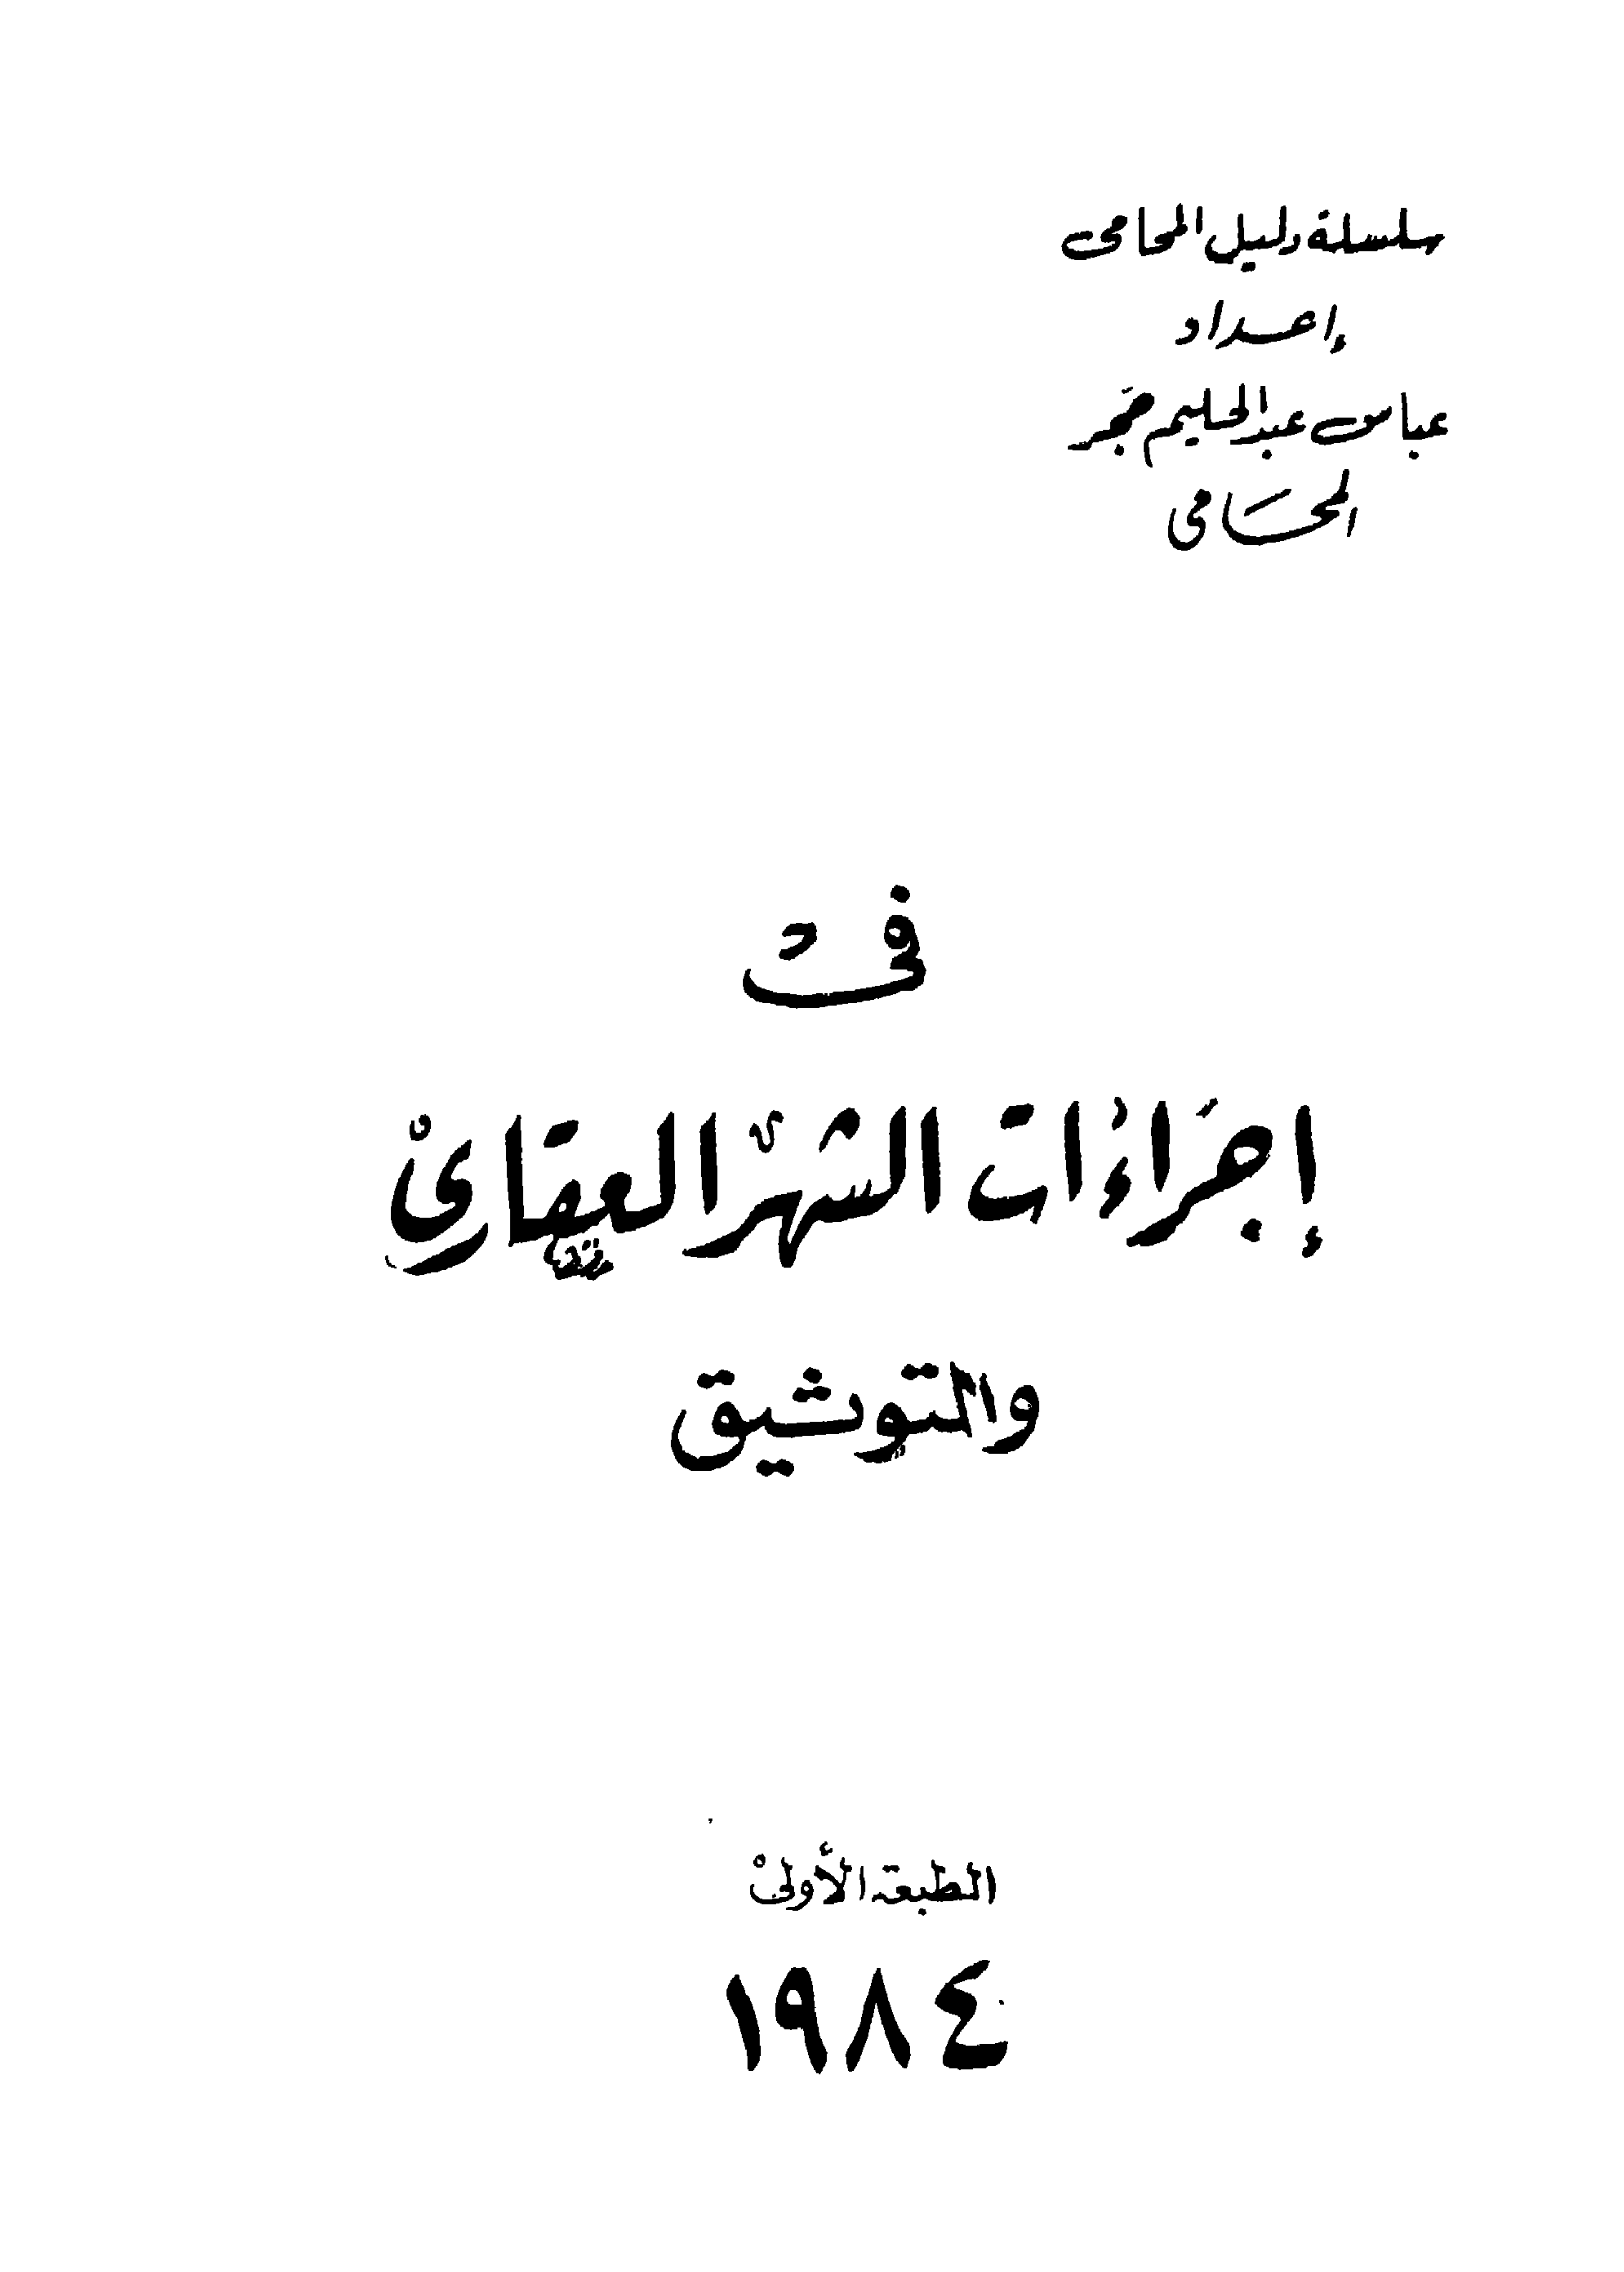 سلسلة دليل المحامى
إعداد
عباس عبدالحليم حجر
المحامى
فى
إجراءات الشهر العقارى
والتوثيق
الطبعة الأولى
١٩٨٤